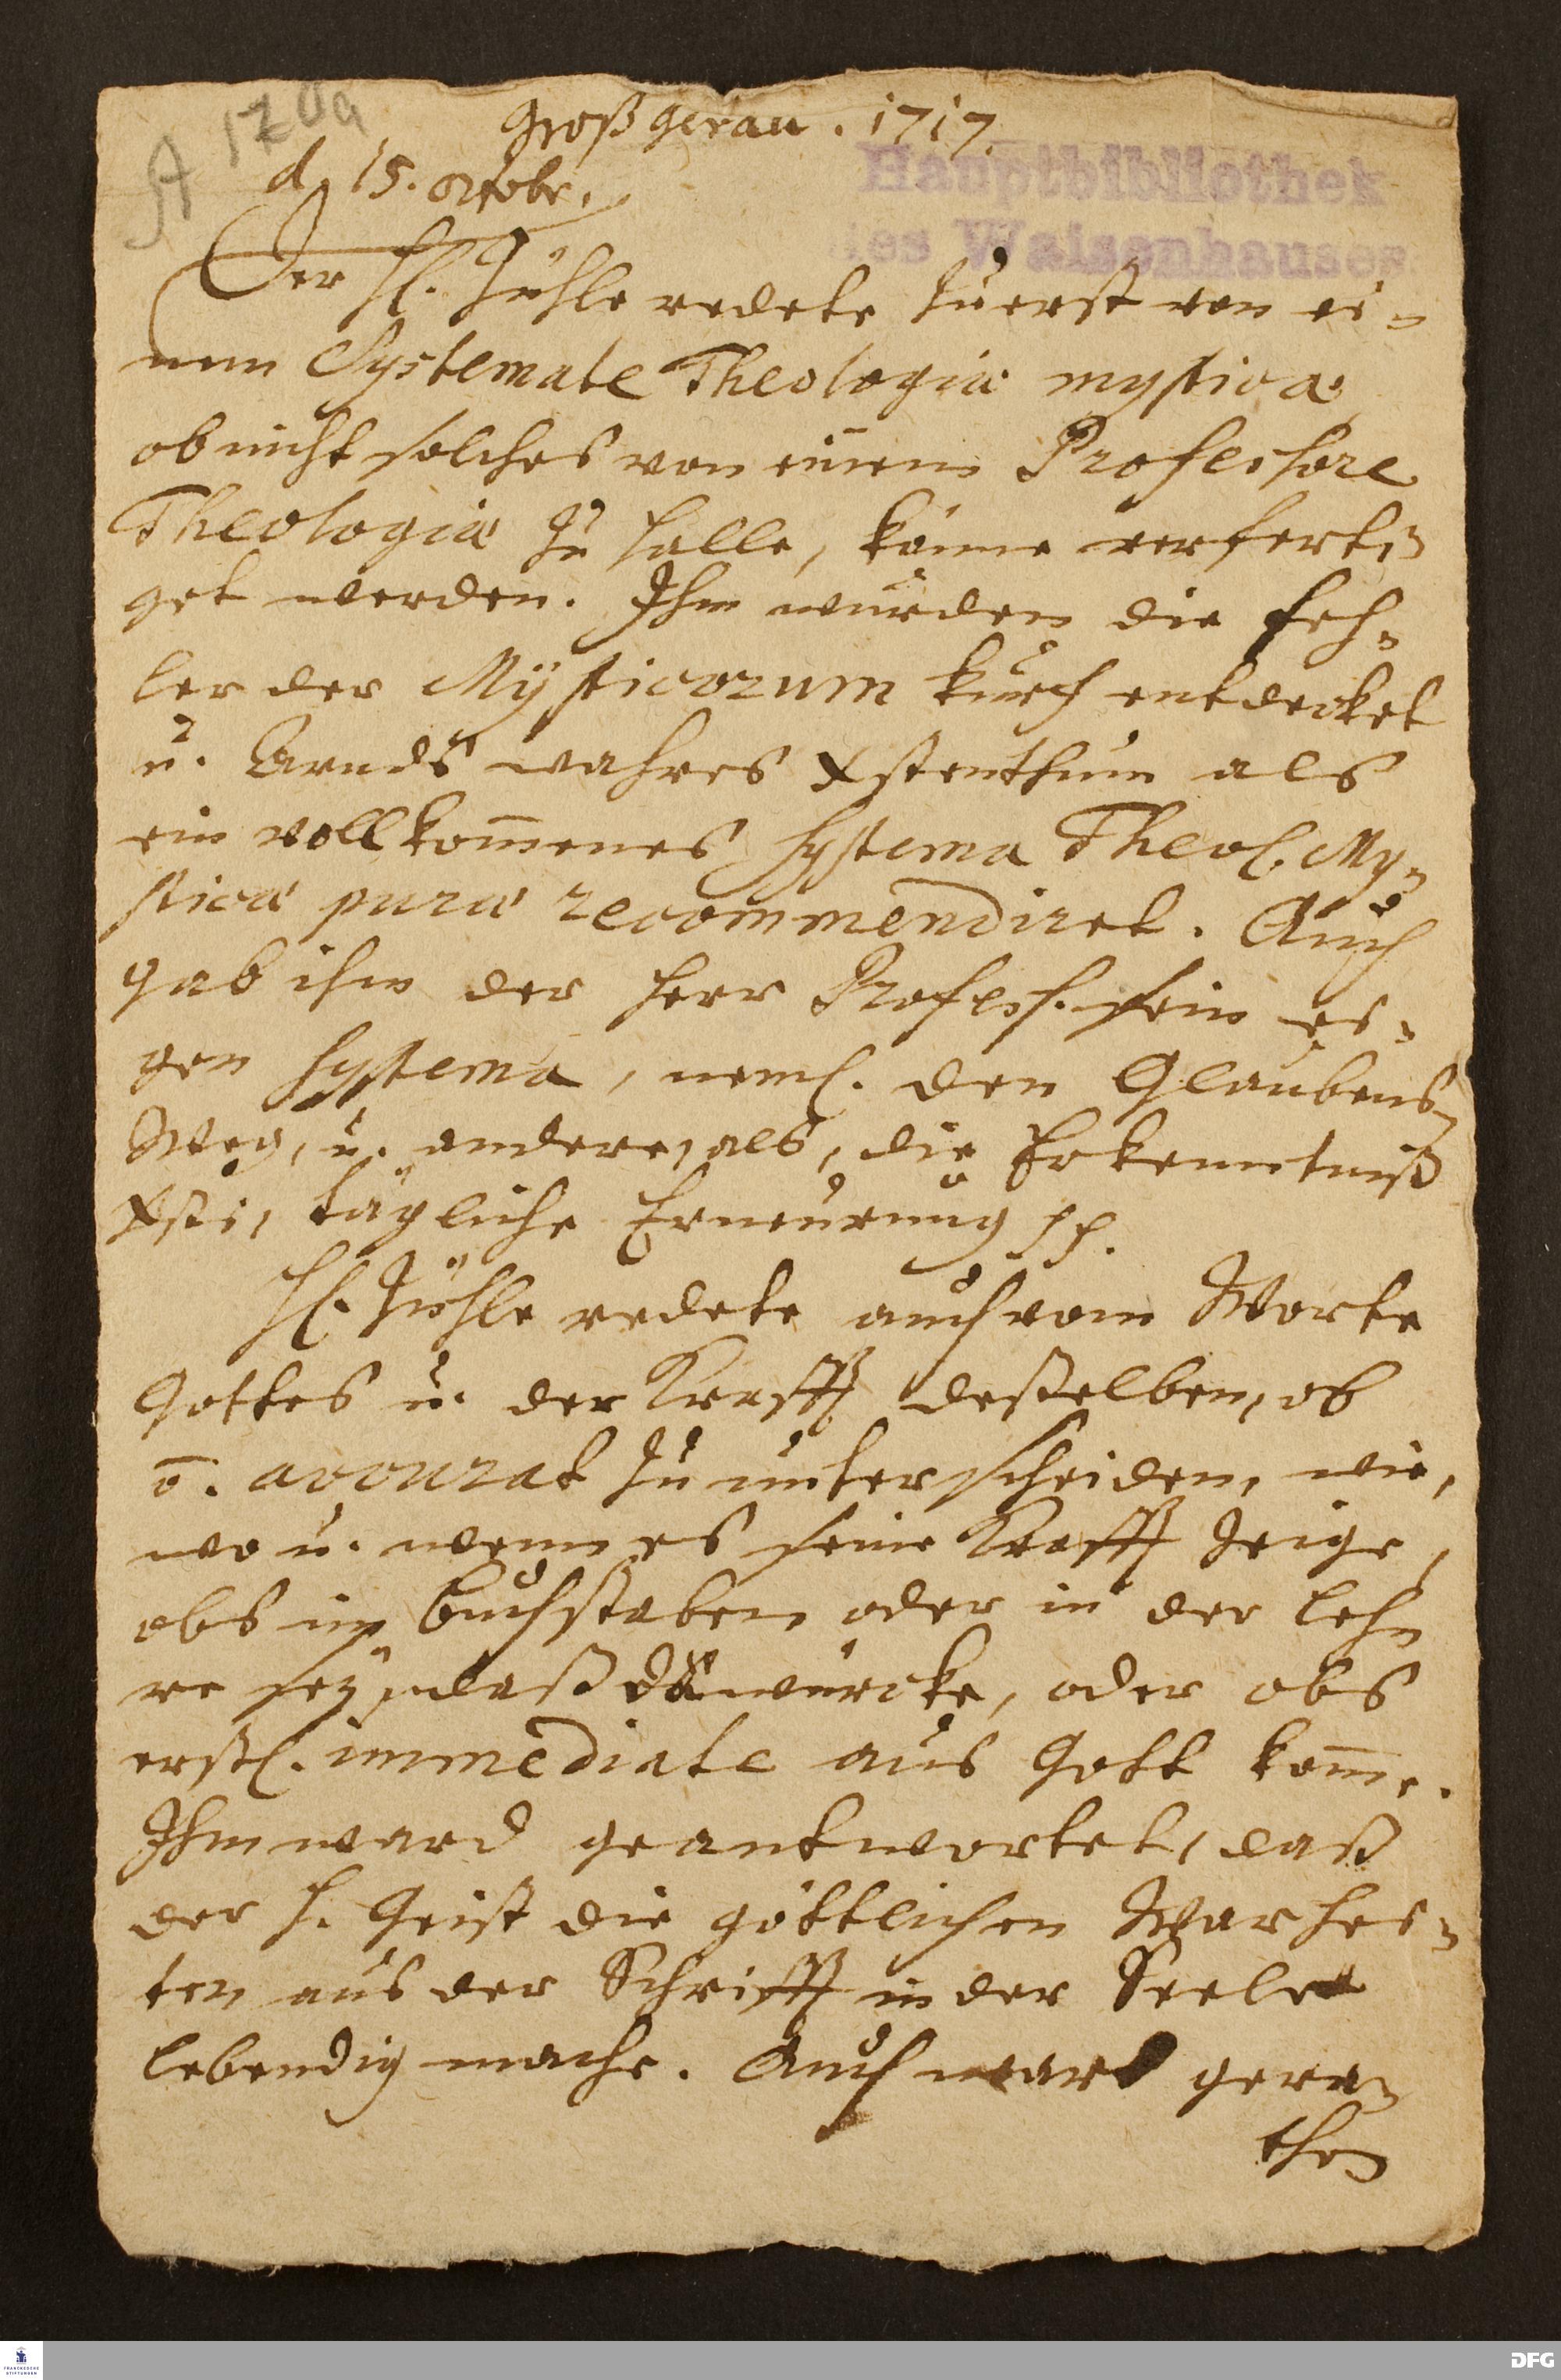 A 170a
Groß Gerau. 1717.
d. 15. Octobr.
Hauptbibliothek
des Waisenhauses
Der H. Zühle redete zuerst von ei-
nem Systemate Theologiæ mysticæ,
ob nicht solches von einem Professore
Theologiæ zu Halle, könne verferti-
get werden. Ihm wurden die Feh-
ler der Mÿsticorum kurtz entdecket
u. Arnds wahres Xstenthum als
ein vollkom̄enes Systema Theol. My-
sticæ puræ recommendiret. Auch
gab ihm der Herr Profess. sein ei-
gen Systema, neml. den Glaubens-
Weg, u. andere, als, die Erkenntniß
Xsti, tägliche Erneurung pp.
H. Zühle redete auch vom Worte
Gottes u. der Krafft deßelben, ob
o̅. accurat zu unterscheiden, wie,
wo u. wenn es seine Krafft zeige,
obs im Buchstaben oder in der Leh-
re seÿ, daß da würcke, oder obs
erstl. immediate aus Gott kom̄e.
Ihm ward geantwortet, daß
der H. Geist die göttlichen Warhei-
ten aus der Schrifft in der Seele
lebendig mache. Auch ward gera-
then
FRANCKESCHE
STIFTUNGEN
DFG